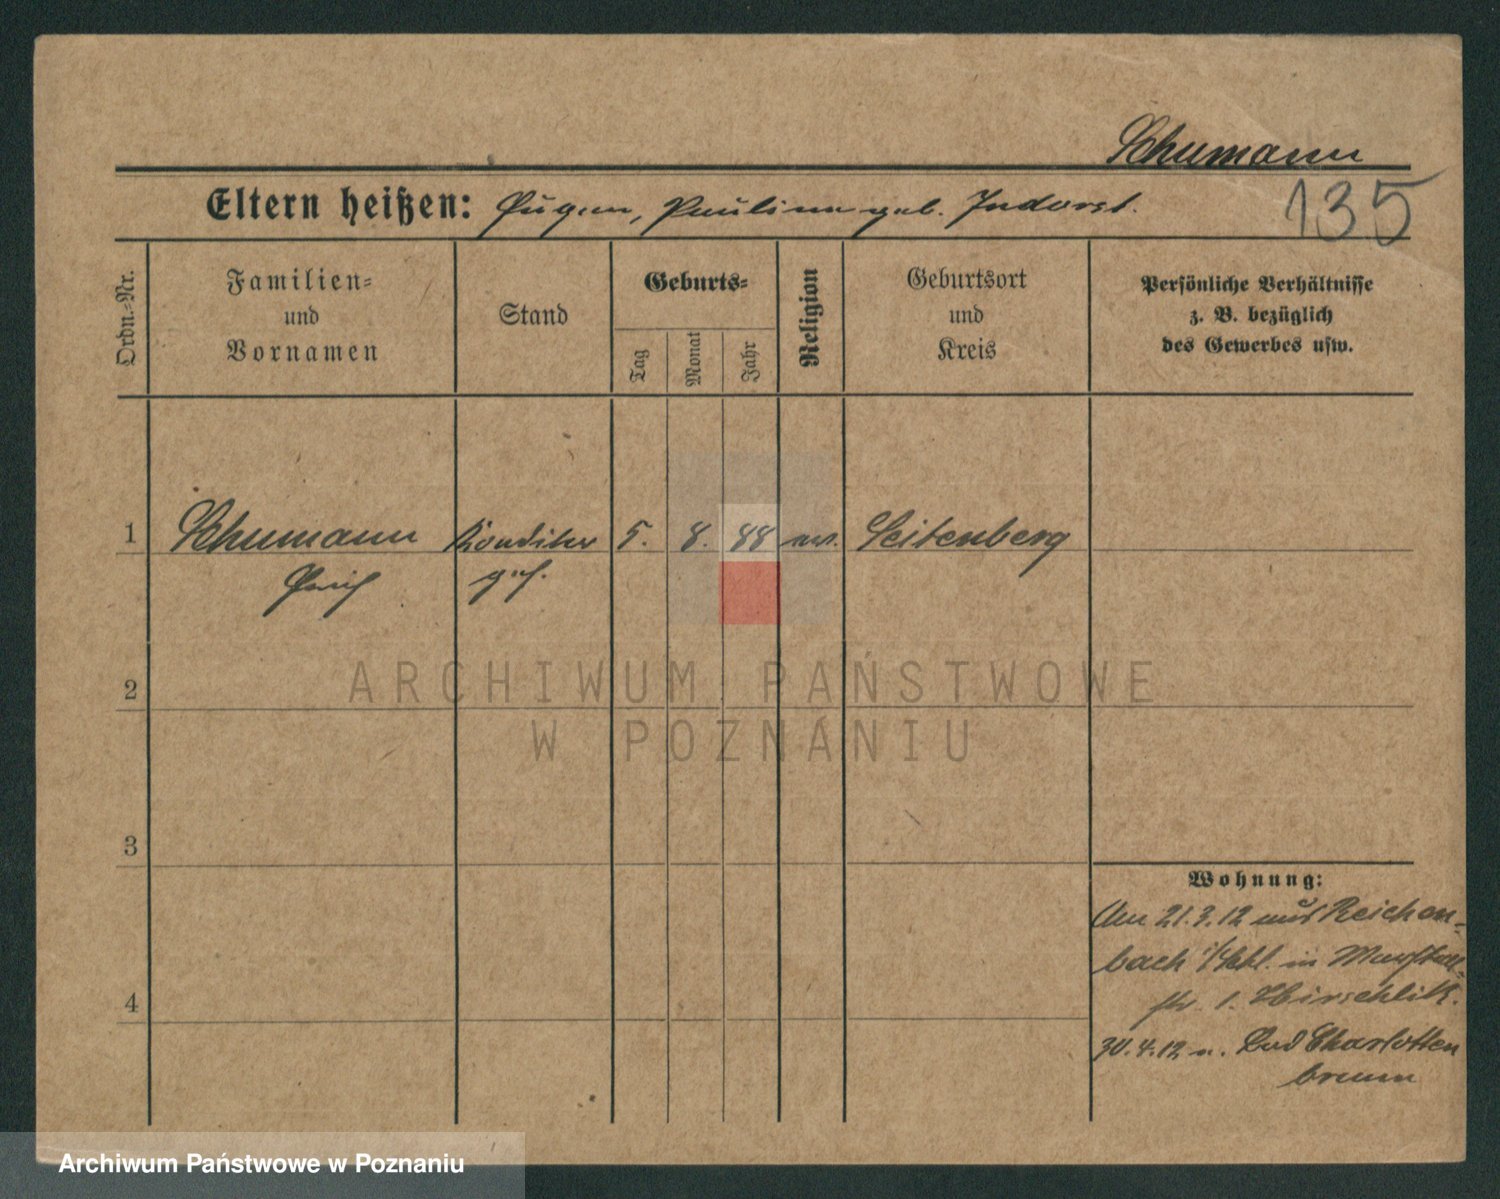 Schumann
135
Eltern heißen: Eugen, Pauline geb. Indorst.
Ordn.=Nr.
Familien=
und
Vornamen
Stand
Geburts=
Tag
Monat
Jahr
Religion
Geburtsort
und
Kreis
Persönliche Verhältnisse
z. B. bezüglich
des Gewerbes usw.
1 Schumann Konditor 5. 8. 88 ev. Seitenberg
Erich geh.
ARCHIWUM PAŃSTWOWE
2
W POZNANIU
3
Wohnung:
Am 21.3.12 aus Reichen-
bach i/Schl. in
4
str. 1. Hirschlik.
30.4.12 n. Bad Charlotten
brunn
Archiwum Państwowe w Poznaniu